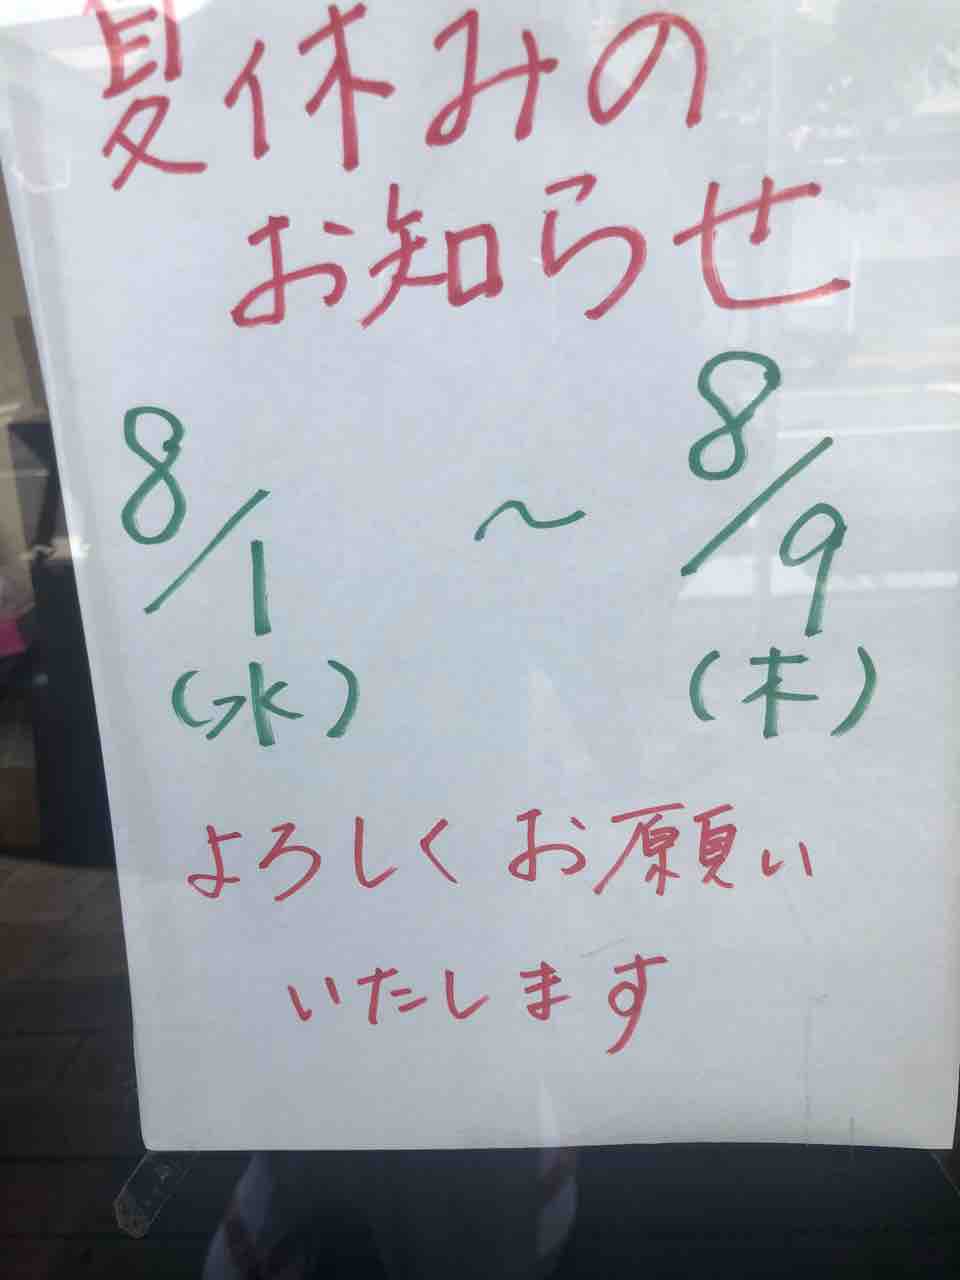 夏休みの
お知らせ
8/1 〜 8/9
(水) (木)
よろしくお願い
いたします